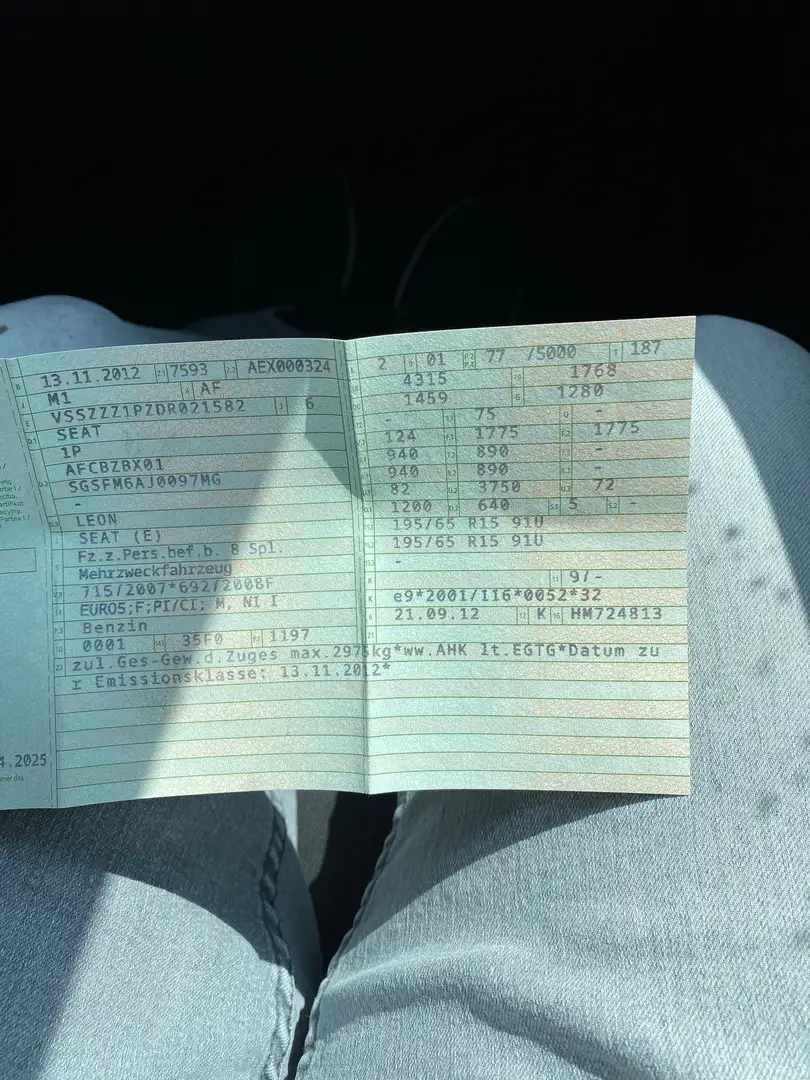 B 13.11.2012 2.1 7593 2.2 AEX000324
J M1 4 AF
E VSSZZZ1PZDR021582 3 6
D.1 SEAT
1P
D.2 AFCBZBX01
SGSFM6AJ0097MG
-
D.3 LEON
2 SEAT (E)
Fz.z.Pers.bef.b. 8 Spl.
5 Mehrzweckfahrzeug
V.9 715/2007*692/2008F
14 EURO5;F;PI/CI; M, NI I
P.3 Benzin
10 0001 14.1 35F0 P.1 1197
22 zul.Ges-Gew.d.Zuges max.2975kg*ww.AHK lt.EGTG*Datum zu
r Emissionsklasse: 13.11.2012*
2 9 01 P.2 P.4 77 /5000 T 187
4315 19 1768
1459 G 1280
- 13 75 Q -
124 F.1 1775 F.2 1775
940 7.2 890 -
940 8.2 890 -
82 U.2 3750 U.3 72
1200 O.2 640 S.1 5 S.2 -
195/65 R15 91U
195/65 R15 91U
-
R 11 9/-
K e9*2001/116*0052*32
6 21.09.12 17 K 16 HM724813
21
4.2025